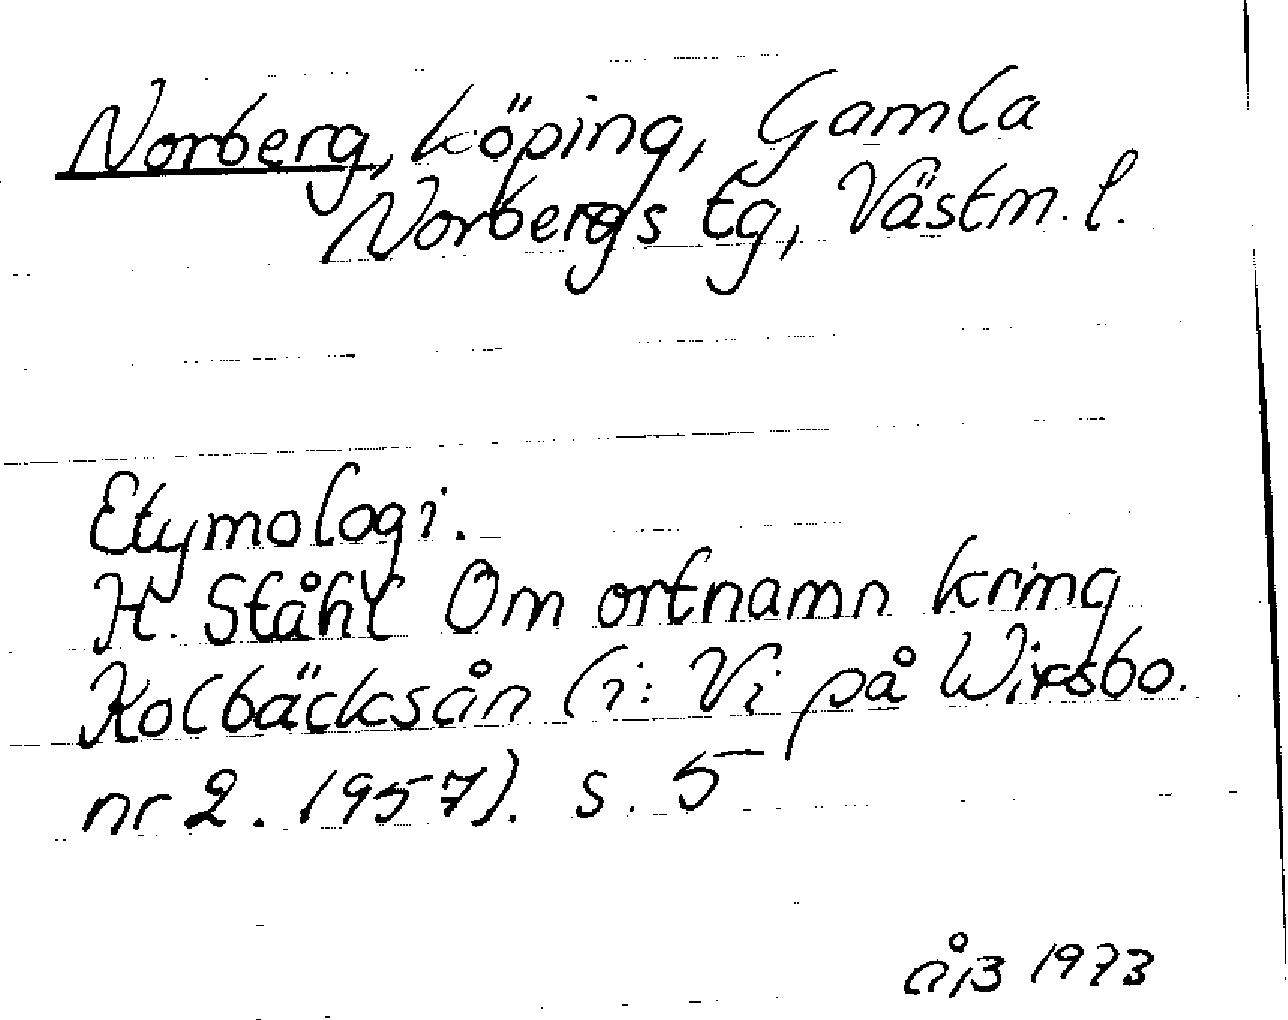 Norberg, köping, Gamla
Norbergs tg, Västm. l.
Etymologi.
H. Ståhl Om ortnamn kring
Kolbäcksån (i: Vi på Wirsbo.
nr 2. 1957). s. 5
ÅB 1973